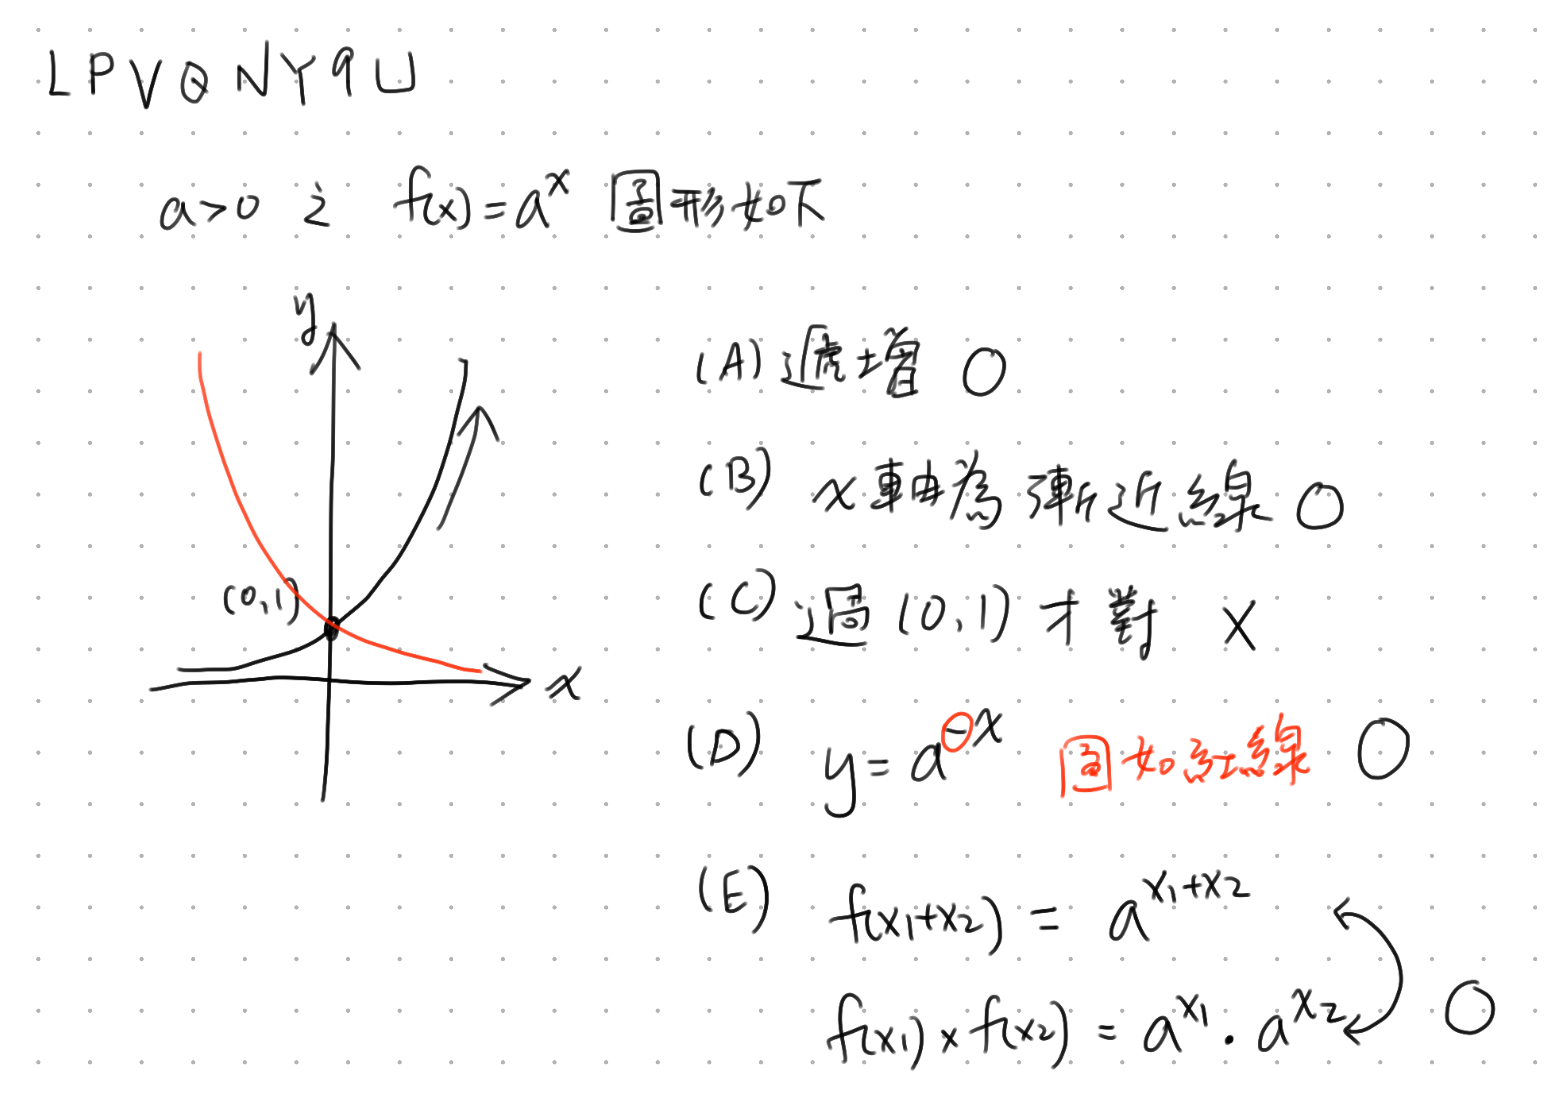 LPVQNY9U
a>0 之 f(x)=a^x 圖形如下
y
(0,1)
x
(A) 遞增 O
(B) x軸為漸近線 O
(C) 過(0,1)才對 X
(D) y=a^-x 圖如紅線 O
(E) f(x₁+x₂) = a^x₁+x₂
f(x₁)×f(x₂) = a^x₁·a^x₂ O